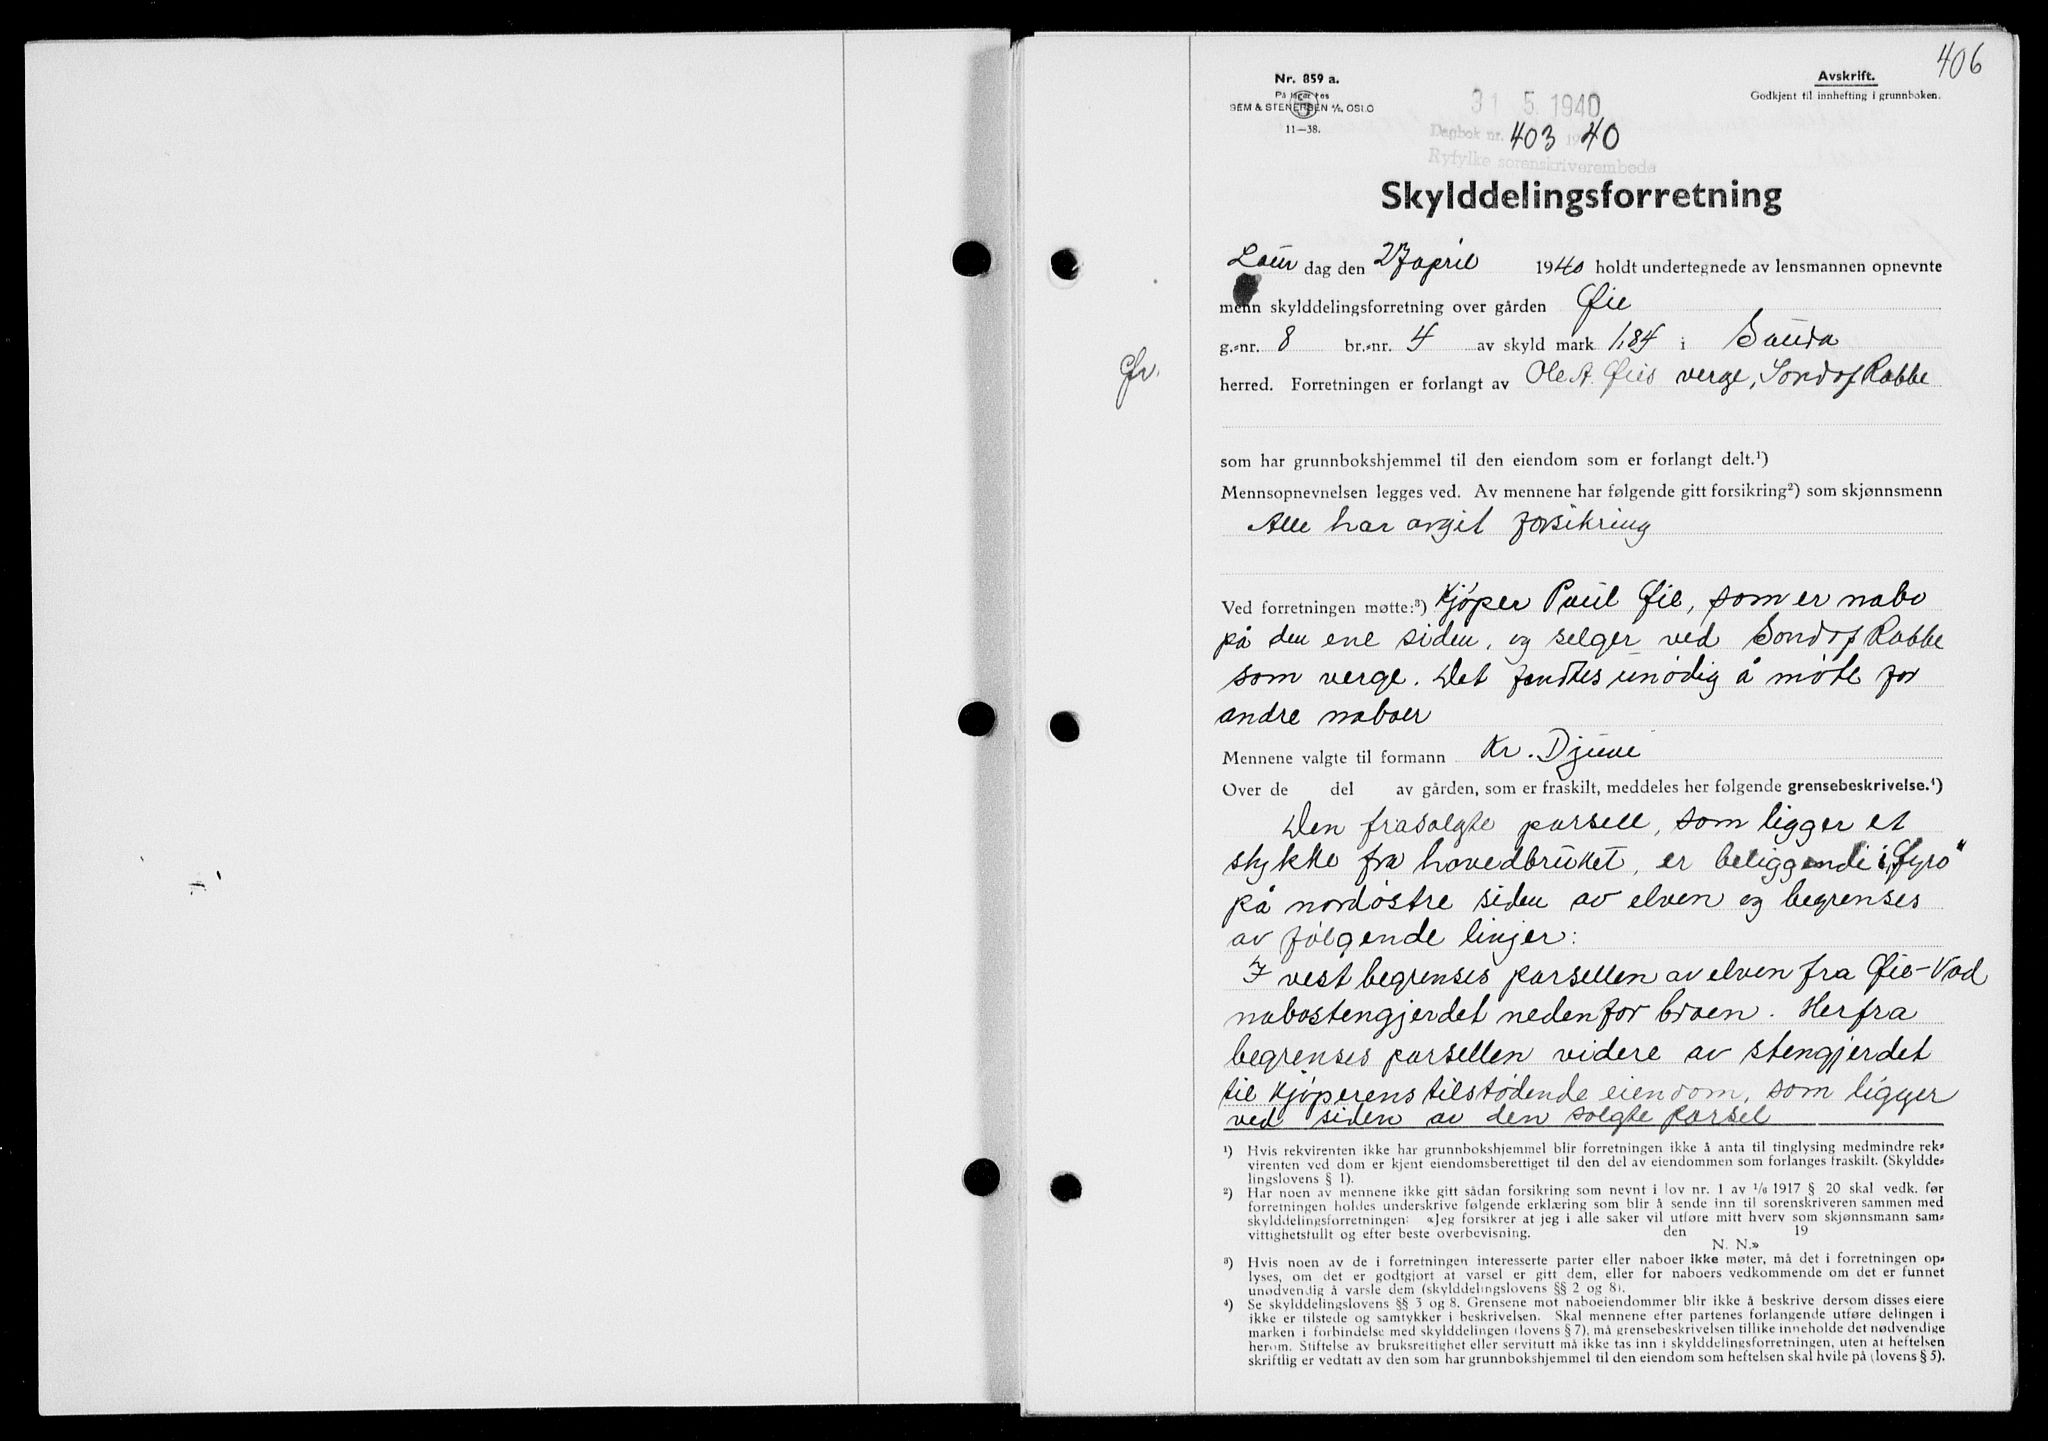 406
Nr. 859 a.
På lager hos
SEM & STENERSEN A/S, OSLO
11—38.
Avskrift.
Godkjent til innhefting i grunnboken.
31 5. 1940
Dagbok nr. 403 19 40
Ryfylke sorenskriverembede
Skylddelingsforretning
Laur dag den 27 april 1940 holdt undertegnede av lensmannen opnevnte
menn skylddelingsforretning over gården Øie
g.-nr. 8 br.-nr. 4 av skyld mark 1,84 i Sauda
herred. Forretningen er forlangt av Ole A. Øies verge, Sondof Rabbe
som har grunnbokshjemmel til den eiendom som er forlangt delt.¹)
Mennsopnevnelsen legges ved. Av mennene har følgende gitt forsikring²) som skjønnsmenn
Alle har avgit forsikring
Ved forretningen møtte:³) Kjøper Paul Øie, som er nabo
på den ene siden, og selger ved Sondof Rabbe
som verge. Det fandtes unødig å møte for
andre naboer
Mennene valgte til formann Kr. Djuve
Over de del av gården, som er fraskilt, meddeles her følgende grensebeskrivelse.⁴)
Den frasolgte parsell, som ligger et
stykke fra hovedbruket, er beliggende i „Øyro"
på nordøstre siden av elven og begrenses
av følgende linjer:
I vest begrenses parsellen av elven fra Øie-Vad
nabostengjerdet nedenfor broen. Herfra
begrenses parsellen videre av stengjerdet
til kjøperens tilstødende eiendom, som ligger
ved siden av den solgte parsel
¹) Hvis rekvirenten ikke har grunnbokshjemmel blir forretningen ikke å anta til tinglysing medmindre rek-
virenten ved dom er kjent eiendomsberettiget til den del av eiendommen som forlanges fraskilt. (Skyldde-
lingslovens § 1).
²) Har noen av mennene ikke gitt sådan forsikring som nevnt i lov nr. 1 av 1/6 1917 § 20 skal vedk. før
forretningen holdes underskrive følgende erklæring som blir å sende inn til sorenskriveren sammen med
skylddelingsforretningen: «Jeg forsikrer at jeg i alle saker vil utføre mitt hverv som skjønnsmann sam-
vittighetsfullt og efter beste overbevisning. den 19
N. N.»
³) Hvis noen av de i forretningen interesserte parter eller naboer ikke møter, må det i forretningen op-
lyses, om det er godtgjort at varsel er gitt dem, eller for naboers vedkommende om det er funnet
unødvendig å varsle dem (skylddelingslovens §§ 2 og 8).
⁴) Se skylddelingslovens §§ 3 og 8. Grensene mot naboeiendommer blir ikke å beskrive dersom disses eiere
ikke er tilstede og samtykker i beskrivelsen. Skal mennene efter partenes forlangende utføre delingen i
marken i forbindelse med skylddelingen (lovens § 7), må grensebeskrivelsen tillike inneholde det nødvendige
herom. Stiftelse av bruksrettighet eller servitutt må ikke tas inn i skylddelingsforretningen, uten at heftelsen
skriftlig er vedtatt av den som har grunnbokshjemmel til den eiendom som heftelsen skal hvile på (lovens § 5).